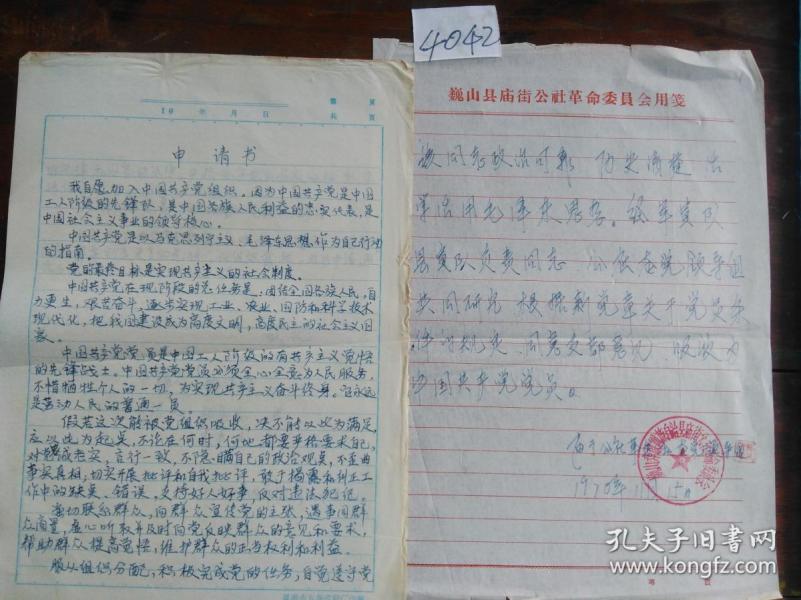 4042
19 年 月 日
第 页
共 页
申请书
我自愿加入中国共产党组织。因为中国共产党是中国
工人阶级的先锋队，是中国各族人民利益的忠实代表，是
中国社会主义事业的领导核心。
中国共产党是以马克思列宁主义、毛泽东思想作为自己行动
的指南。
党的最终目标是实现共产主义的社会制度。
中国共产党在现阶段的总任务是：团结全国各族人民，自
力更生，艰苦奋斗，逐步实现工业、农业、国防和科学技术
现代化，把我国建设成为高度文明，高度民主的社会主义国
家。
中国共产党党员是中国工人阶级的有共产主义觉悟
的先锋战士。中国共产党党员必须全心全意为人民服务，
不惜牺牲个人的一切，为实现共产主义奋斗终身。它永远
是劳动人民的普通一员。
假若这次能被党组织吸收，决不能以此为满足
应以此为起点，不论在何时，何地都要严格要求自己，
对党忠诚老实，言行一致，不隐瞒自己的政治观点，不歪曲
事实真相；切实开展批评和自我批评，敢于揭露和纠正工
作中的缺点、错误，支持好人好事，反对违法犯纪。
密切联系群众，向群众宣传党的主张，遇事同群
众商量，虚心听取并及时向党反映群众的意见和要求，
帮助群众提高觉悟，维护群众的正当权利和利益。
服从组织分配，积极完成党的任务；自觉遵守党
巍山县庙街公社革命委员会用笺
该同志政治可靠 历史清楚 活
学活用毛泽东思想。经军宣队
县宣队负责同志 公社整党领导组
共同研究 根据新党章关于党员条
件的规定、同意支部意见 吸收为
中国共产党党员。
1970年
15日
第 页
孔夫子旧书网
www.kongfz.com